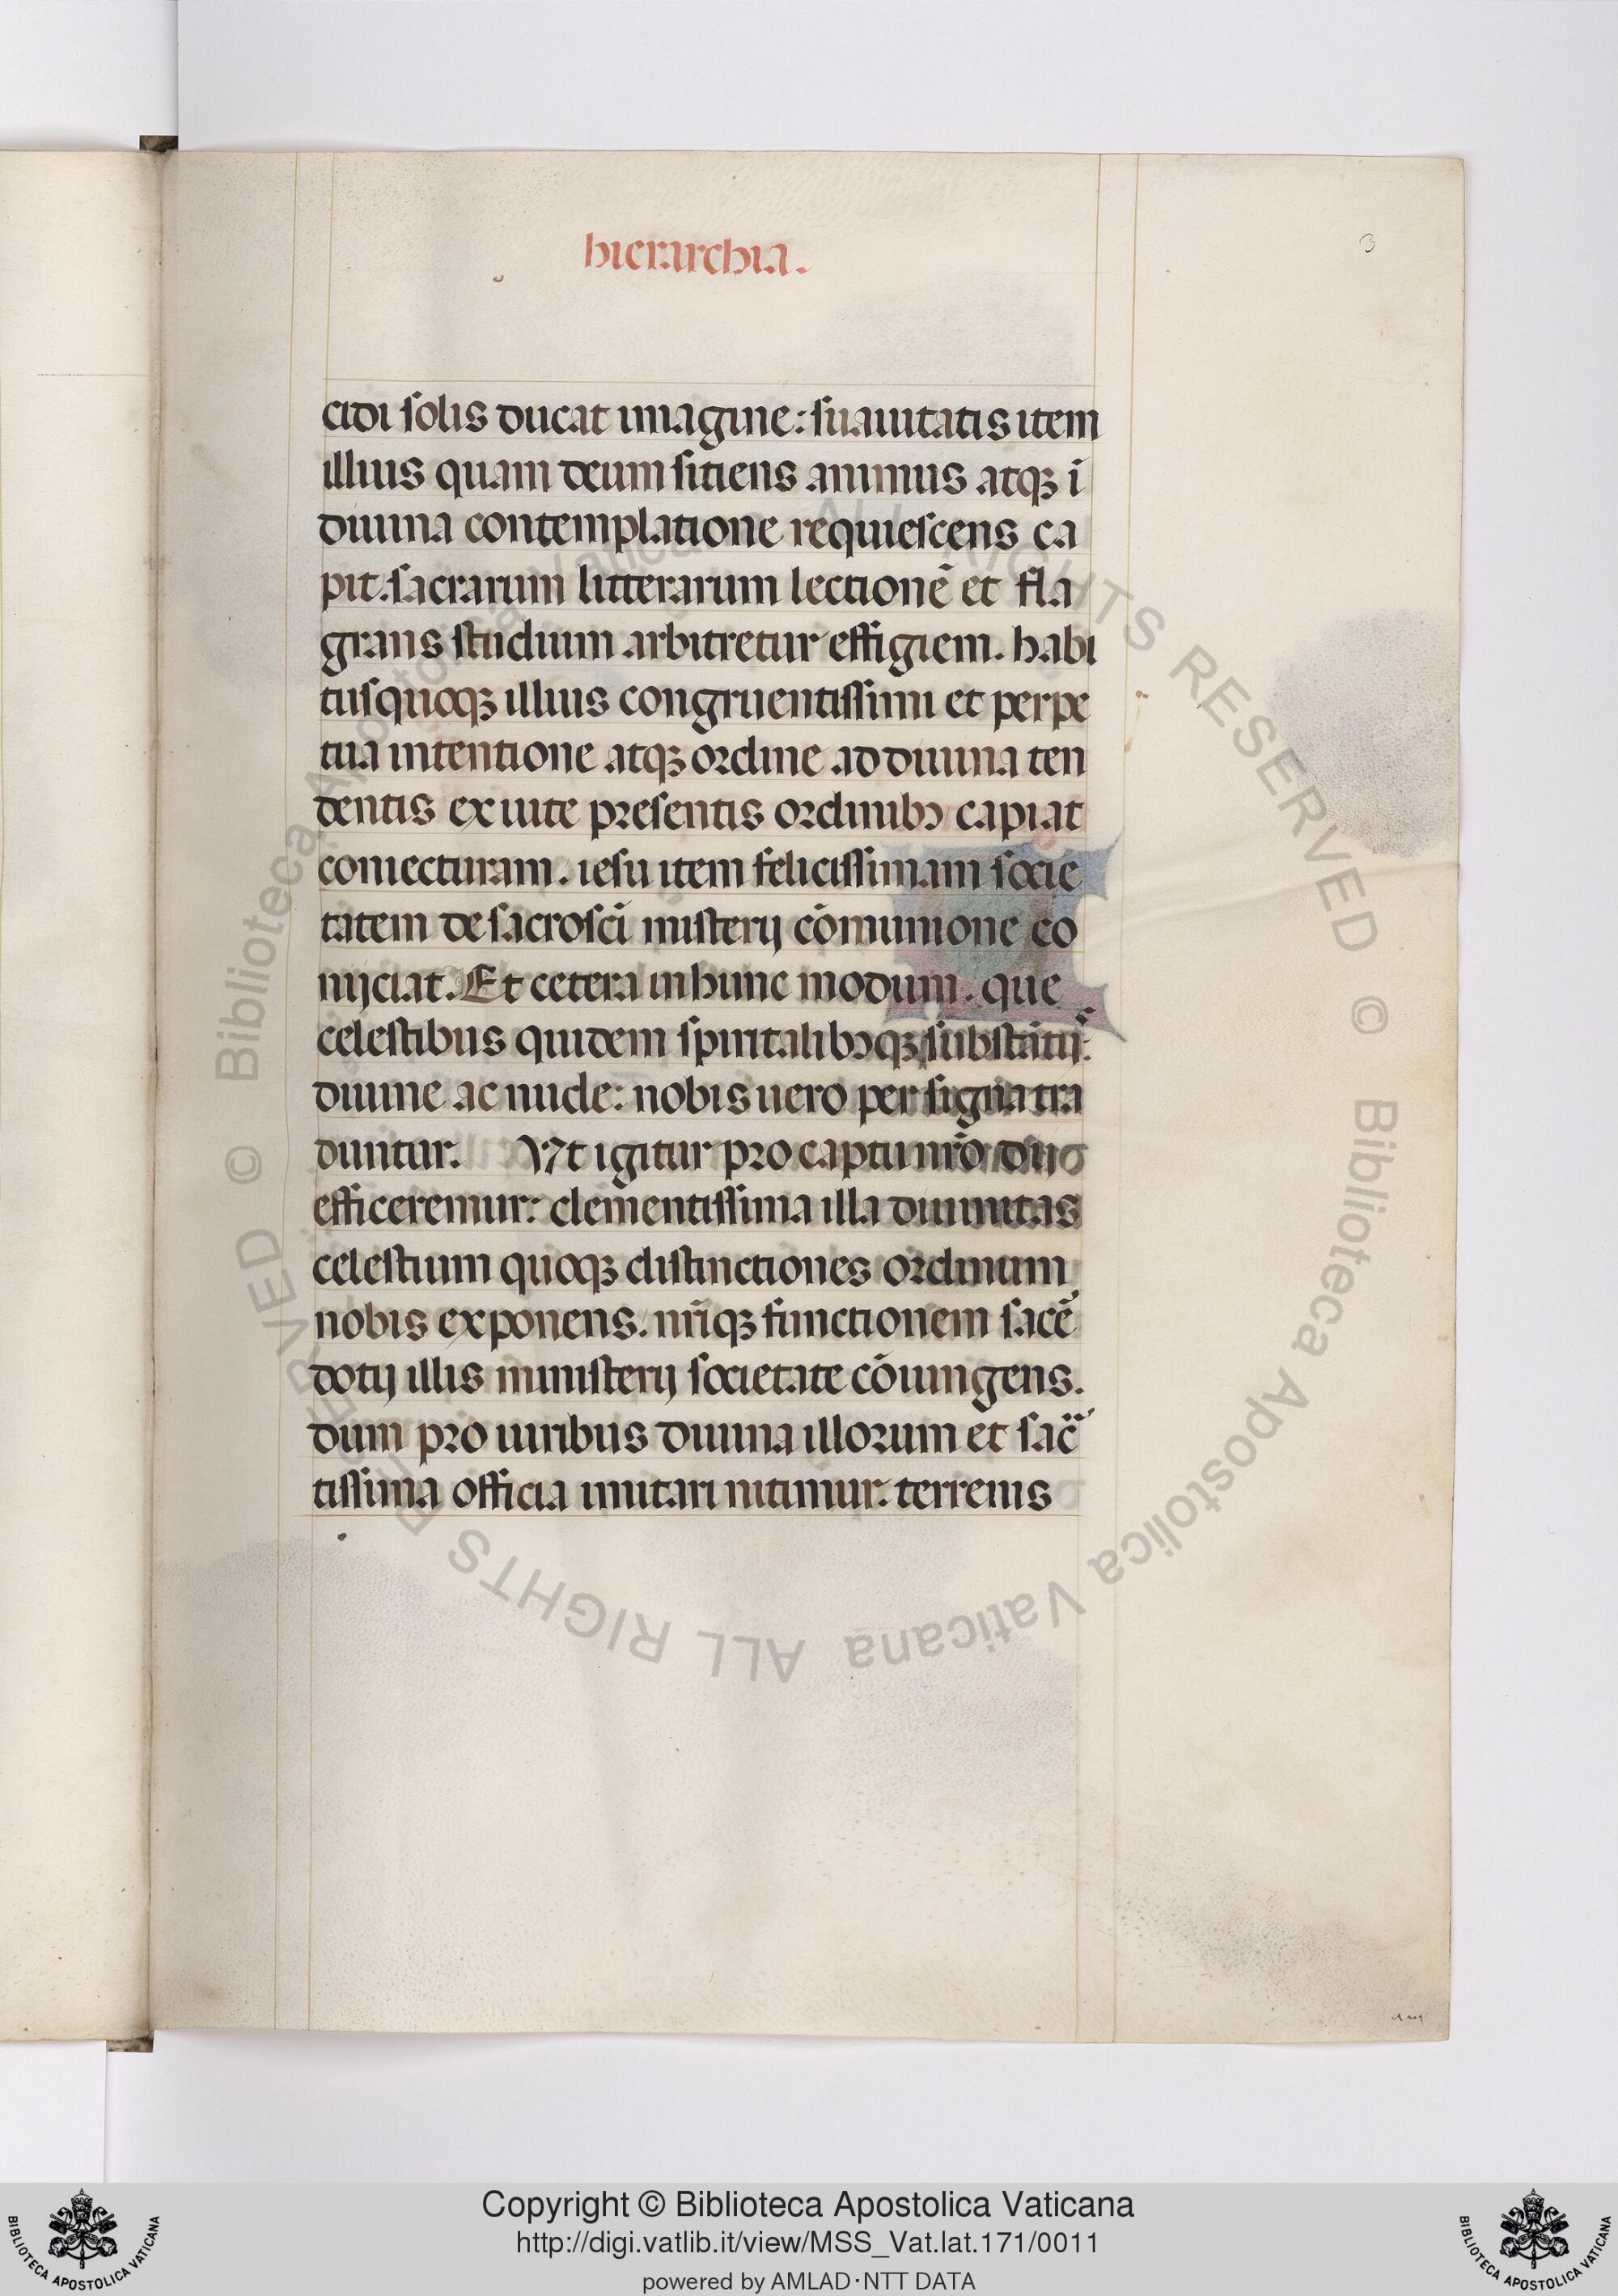 hierarchia.
3
cidi solis ducat imagine: suauitatis item
illius quam deum sitiens animus atqꝫ ī
diuina contemplatione requiescens ca
pit. sacrarum litterarum lectionē et fla
grans studium arbitretur effigiem. habi
tusquoqꝫ illius congruentissimi et perpe
tua intentione atqꝫ ordine ad diuina ten
dentis ex uite presentis ordinibꝰ capiat
coniecturam. iesu item felicissimam socie
tatem de sacroscī misterij cōmunione co
nijciat. Et cetera in hunc modum. que
celestibus quidem spiritalibꝰqꝫ substātijs:
diuine ac nude: nobis uero per signa tra
duntur. Vt igitur pro captu nr̄o dij
efficeremur: clementissima illa diuinitas
celestium quoqꝫ distinctiones ordinum
nobis exponens. nr̄iqꝫ functionem sacē
dotij illis ministerij societate cōiungens.
dum pro uiribus diuina illorum et sac̄
tissima officia imitari nitimur. terrenis
Copyright © Biblioteca Apostolica Vaticana
http://digi.vatlib.it/view/MSS_Vat.lat.171/0011
powered by AMLAD·NTT DATA
BIBLIOTECA APOSTOLICA VATICANA
BIBLIOTECA APOSTOLICA VATICANA
© Biblioteca Apostolica Vaticana ALL RIGHTS RESERVED
© Biblioteca Apostolica Vaticana ALL RIGHTS RESERVED